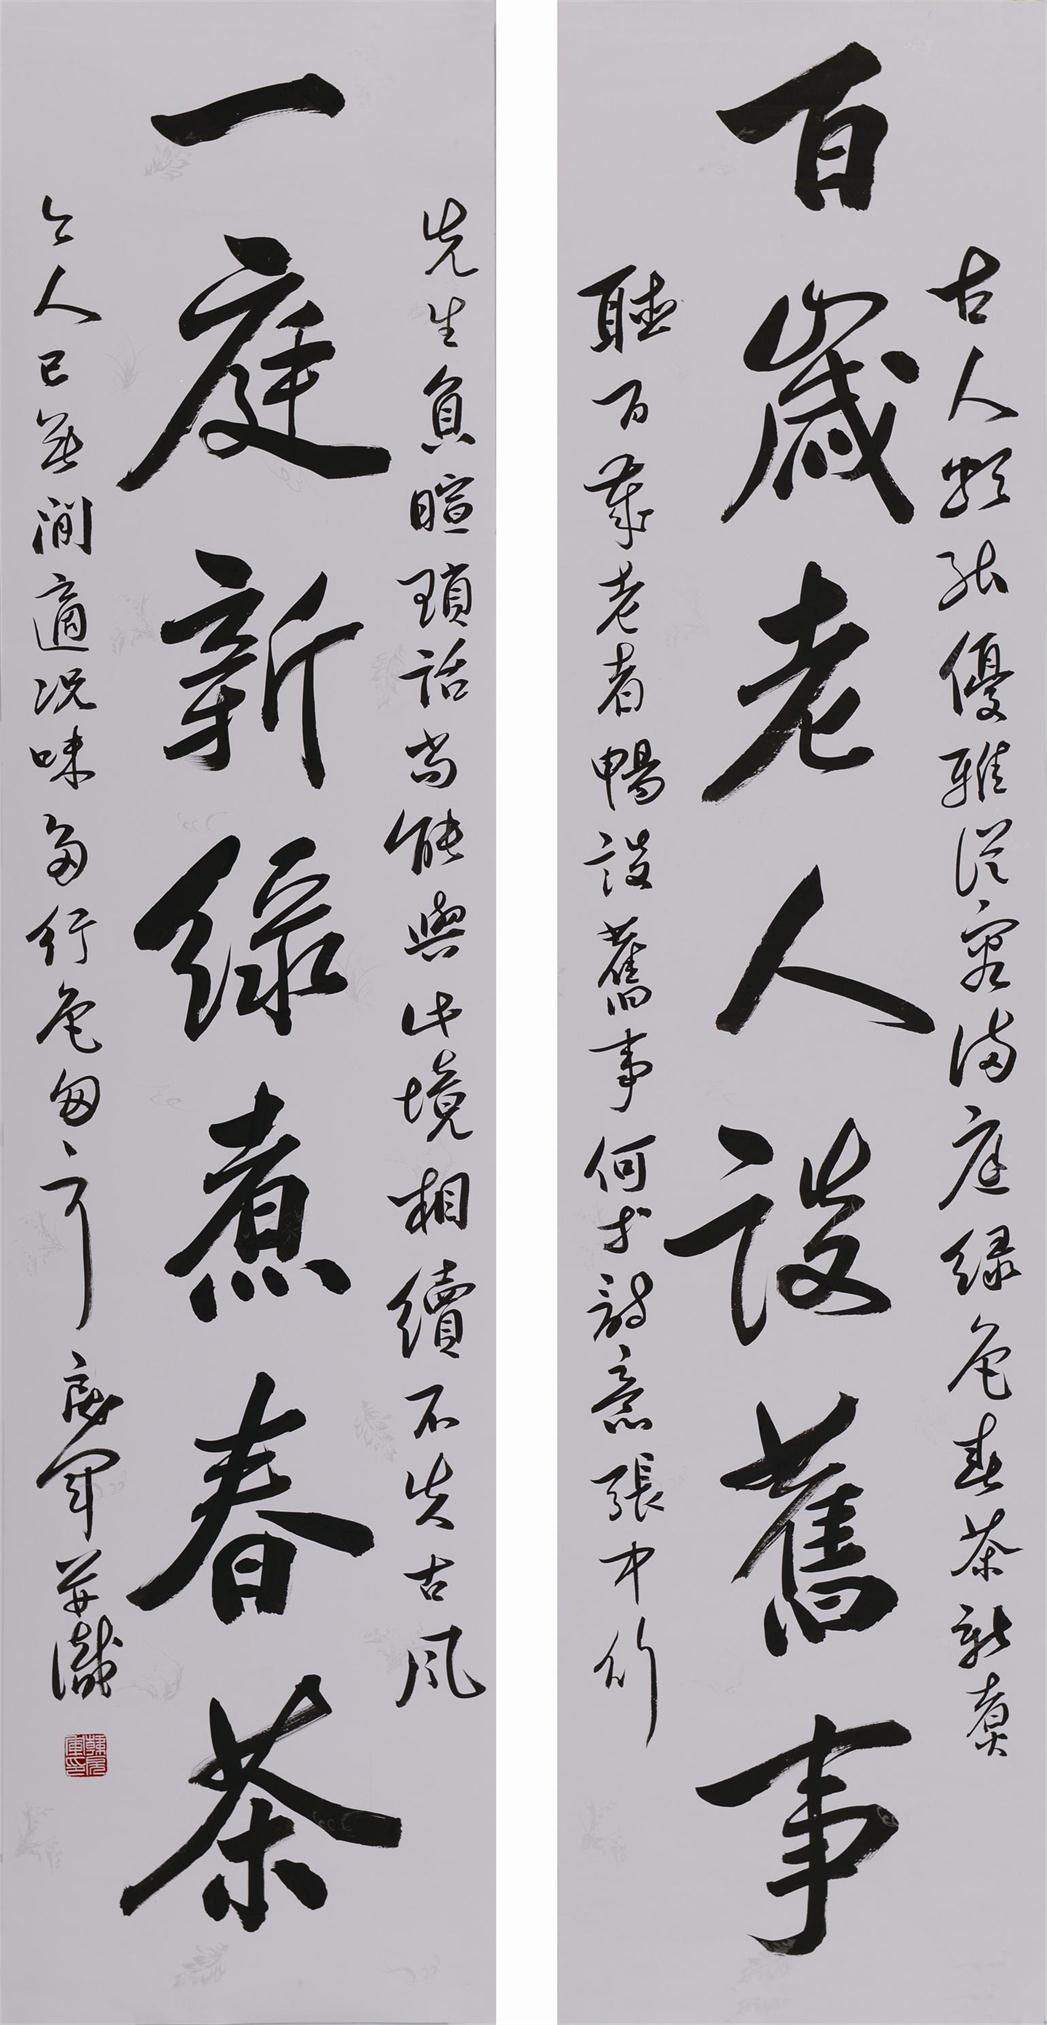 百歲老人談舊事
古人頗能優雅從容滿庭綠色春茶新煑
聽百歲老者暢談舊事何等詩意張中行
一庭新綠煮春茶
先生負暄瑣話尚能與此境相續不失古風
今人已無閒適況味多行色匆匆